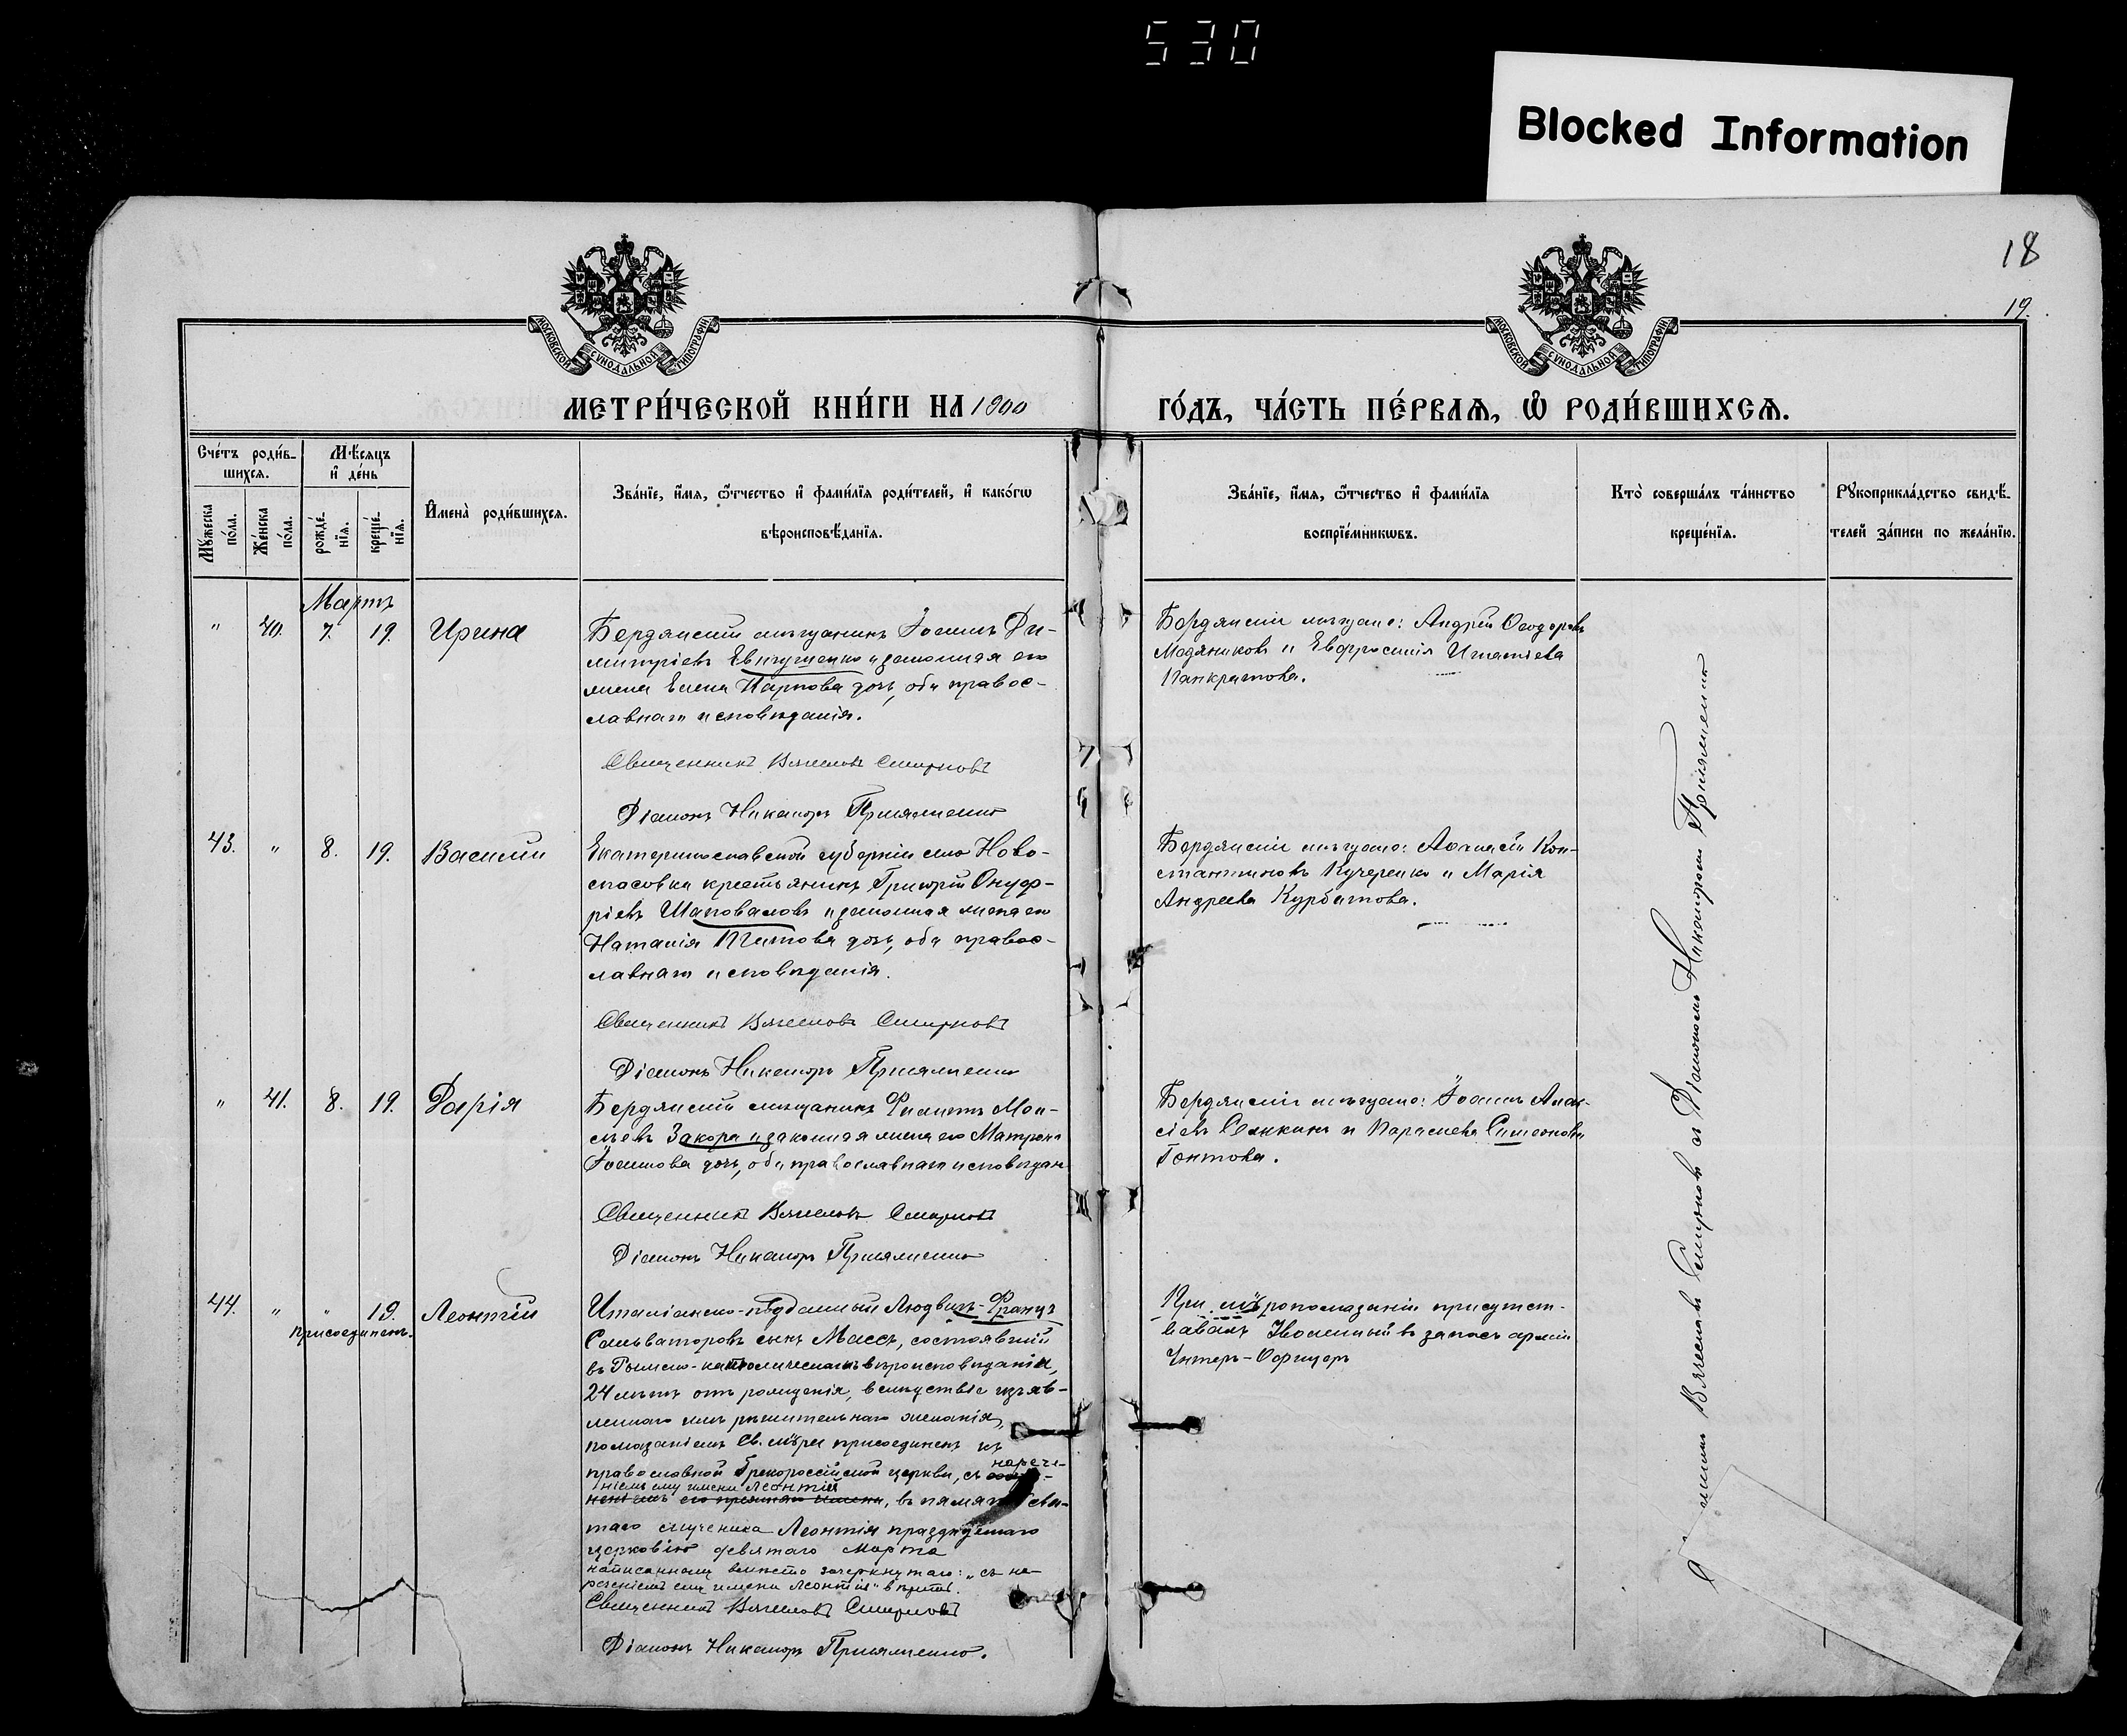 530
Blocked Information
18
19.
МОСКОВСКОЙ СУНОДАЛЬНОЙ ТИПОГРАФІИ
МОСКОВСКОЙ СУНОДАЛЬНОЙ ТИПОГРАФІИ
МЕТРИ́ЧЕСКОЙ КНИ́ГИ НА 1900
ГО́ДЪ, ЧА́СТЬ ПЕ́РВАѦ, Ѡ РОДИ́ВШИХСѦ.
Сче́тъ роди́в-
шихсѧ.
Мѣ́сѧцъ
и҆ де́нь
Мꙋ́жеска
по́ла.
Же́нска
по́ла.
рожде́-
нїѧ.
креще́-
нїѧ.
И҆мена̀ роди́вшихсѧ.
Зва́нїе, и҆́мѧ, ѻ҆́тчество и҆ фами́лїѧ роди́телей, и҆ како́гѡ
вѣроисповѣ́данїѧ.
Зва́нїе, и҆́мѧ, ѻ҆́тчество и҆ фами́лїѧ
воспрїе́мникѡвъ.
Кто̀ соверша́лъ та́инство
креще́нїѧ.
Рꙋкоприкла́дство свидѣ́-
телей за́писи по жела́нїю.
Мартъ
" 40. 7. 19. Ирина
Бердянскій мѣщанинъ Іоаннъ Ди-
митріевъ Евтушенко и законная его
жена Елена Карпова дочь, оба правос-
лавнаго исповѣданія.
Священникъ Вячеславъ Смирновъ
Діаконъ Никаноръ
Бердянскіе мѣщане: Андрей Ѳеодоровъ
Модяниковъ и Евфросинія Игнатіева
Панкратова.
43. " 8. 19. Василій
Екатеринославской губерніи села Ново-
спасовки крестьянинъ Григорій Онуф-
ріевъ Шаповаловъ и законная жена его
Наталія Титова дочь, оба правос-
лавнаго исповѣданія.
Священникъ Вячеславъ Смирновъ
Діаконъ Никаноръ
Бердянскіе мѣщане: Аѳанасій Кон-
стантиновъ Кучеренко и Марія
Андреева Курбатова.
" 41. 8. 19. Дарія
Бердянскій мѣщанинъ Филиппъ Мои-
сѣевъ Закора и законная жена его Матрона
Іоаннова дочь, оба православнаго исповѣдан
Священникъ Вячеславъ Смирновъ
Діаконъ Никаноръ
Бердянскіе мѣщане: Іоаннъ Анан-
сіевъ и Параскева Симеонова
Гонтова.
44. " " 19. Леонтій
присоединенъ.
Италіанско-подданный Людвигъ-Францъ
Сальваторовъ сынъ Массъ, состоявшій
въ Римско-католическомъ вѣроисповѣданіи,
24 лѣтъ отъ рожденія, вслѣдствіе изъяв-
леннаго имъ рѣшительнаго желанія,
помазаніемъ Св. мѵра присоединенъ къ
православной Грекороссійской церкви, съ нарече-
ніемъ ему имени Леонтій
неніемъ его имени, въ память свя-
таго мученика Леонтія празднуемаго
церковію девятаго Марта
написанному вмѣсто зачеркнутаго: „съ на-
реченіемъ ему имени Леонтія"
Священникъ Вячеславъ Смирновъ
Діаконъ Никаноръ
При мѵропомазаніи присутст-
вовалъ Уволенный въ запасъ арміи
Унтеръ-Офицеръ
Вячеславъ Смирновъ съ Діакономъ Никаноромъ